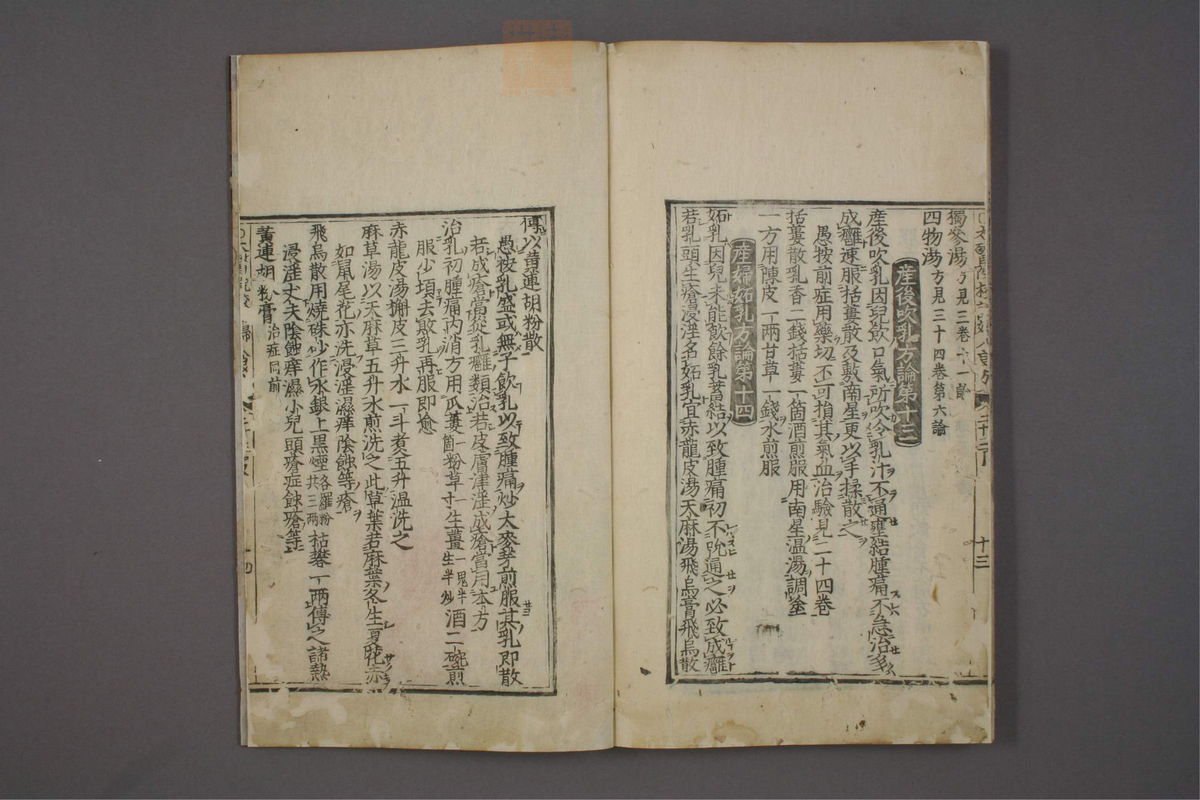 獨參湯方見三卷十一論
四物湯方見三十四卷第六論
産後吹乳方論第十三
産後吹乳因兒飲口氣所吹令乳汁不通壅結腫痛不急治多
成癰速服栝蔞散及敷南星更以手揉散之
愚按前症用藥切不可損其氣血治驗見二十四卷
栝蔞散乳香二錢栝蔞一箇酒煎服用南星温湯調塗
一方用陳皮一兩甘草一錢水煎服
産婦妬乳方論第十四
妬乳因兒未能飲餘乳蓄結以致腫痛初不吮通之必致成癰
若乳頭生瘡浸淫名妬乳宜赤龍皮湯天麻湯飛烏膏飛烏散
十三
傅以黄連胡粉散
愚按乳盛或無子飲乳以致腫痛炒大麥芽煎服其乳即散
若成瘡當從乳癰類治若皮膚津淫成瘡當用本方
治乳初腫痛内消方用瓜蔞一箇粉草一寸生薑一塊半生半炒酒二碗煎
服少頃去敗乳再服即愈
赤龍皮湯槲皮三升水一斗煮五升温洗之
麻草湯以天麻草五升水煎洗之此草葉若麻葉冬生夏花赤
如鼠尾花亦洗浸淫濕痒陰蝕等瘡
飛烏散用燒硃砂作水銀上黒煙各羅粉共三兩枯礬一兩傅之諸熱
浸淫丈夫陰蝕痒濕小兒頭瘡疳蝕瘡等
黄連胡粉膏治症同前